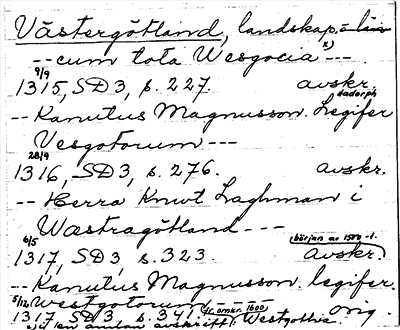 Västergötland, landskap o. län
-- cum tota Wesgocia x) ---
9/9
1315, SD 3, s. 227. avskr.
-- Kanutus Magnusson. Legifer
Vesgotorum ---
28/9
1316, SD 3, s. 276. avskr.
-- Herra Knut Laghman i
Wæstragötland ---
6/5 (början av 1500-t.
1317, SD 3, s. 323. avskr.)
-- Kanutus Magnusson. legifer.
5/12 Westgotorum --- fr. omkr. 1600
1317, SD 3, s. 341. orig.
en annan avskrift: Westgothie